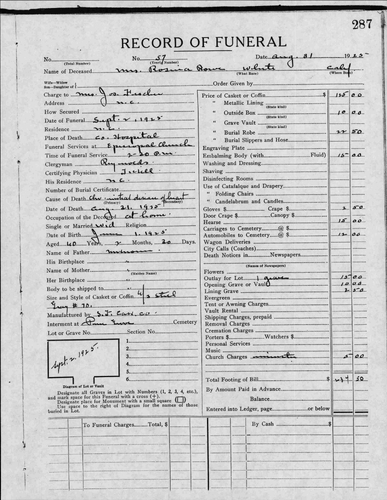 287
RECORD OF FUNERAL
No. No. 57 Date Aug. 31 1925
(Total Number) (Yearly Number)
Name of Deceased Mrs. Rosina Rowe White
(What Race) (Where Born)
Charge to Mrs. J. S. Fischer
Address N.C.
How Secured
Date of Funeral Sept. 2, 1925
Residence N.C.
Place of Death Co. Hospital
Funeral Services at Episcopal Church
Time of Funeral Service 2:30 P.M.
Clergyman Reynolds
Certifying Physician
His Residence N.C.
Number of Burial Certificate
Cause of Death Chr. mitral disease of heart
Date of Death Aug 31, 1925
Occupation of the Deceased at home
Single or Married Wid Religion
Date of Birth June 1925
Aged 60 Years 2 Months 30 Days
Name of Father unknown
His Birthplace
Name of Mother
(Maiden Name)
Her Birthplace
Body to be shipped to
Size and Style of Casket or Coffin
Manufactured by
Interment at Pine Cemetery
Lot or Grave No. Section No.
Sept. 2, 1925
1
2
3
4
Diagram of Lot or Vault
Designate all Graves in Lot with Numbers (1, 2, 3, 4, etc.),
and mark space for this Funeral with a cross (+).
Designate place for Monument with a small square
Use space to the right of Diagram for the names of those
buried in Lot.
Order Given by
Price of Casket or Coffin $ 125 00
" Metallic Lining
(State Kind)
" Outside Box 10 00
(State Kind)
" Grave Vault
(State Kind)
" Burial Robe 22 50
(State Kind)
" Burial Slippers and Hose
Engraving Plate
Embalming Body (with Fluid) 15 00
Washing and Dressing
Shaving
Disinfecting Rooms
Use of Catafalque and Drapery
" Folding Chairs
" Candelabrum and Candles
Gloves $ Crape $ 2 50
Door Crape Gloves $
Hearse 15 00
Carriages to Cemetery @ $
Automobiles to Cemetery @ $ 12 00
Wagon Deliveries
City Calls (Coaches)
Death Notices in Newspapers
(Names of Newspapers)
Flowers
Outlay for Lot 1 grave 15 00
Opening Grave or Vault 10 00
Lining Grave 2 50
Evergreen
Tent or Awning Charges
Vault Rental
Shipping Charges, prepaid
Removal Charges
Cremation Charges
Porters $ Watchers $
Personal Services
Music
Church Charges minister 5 00
Total Footing of Bill $ 50
By Amount Paid in Advance
Balance
Entered into Ledger, page or below
To Funeral Charges, Total, $
By Cash $